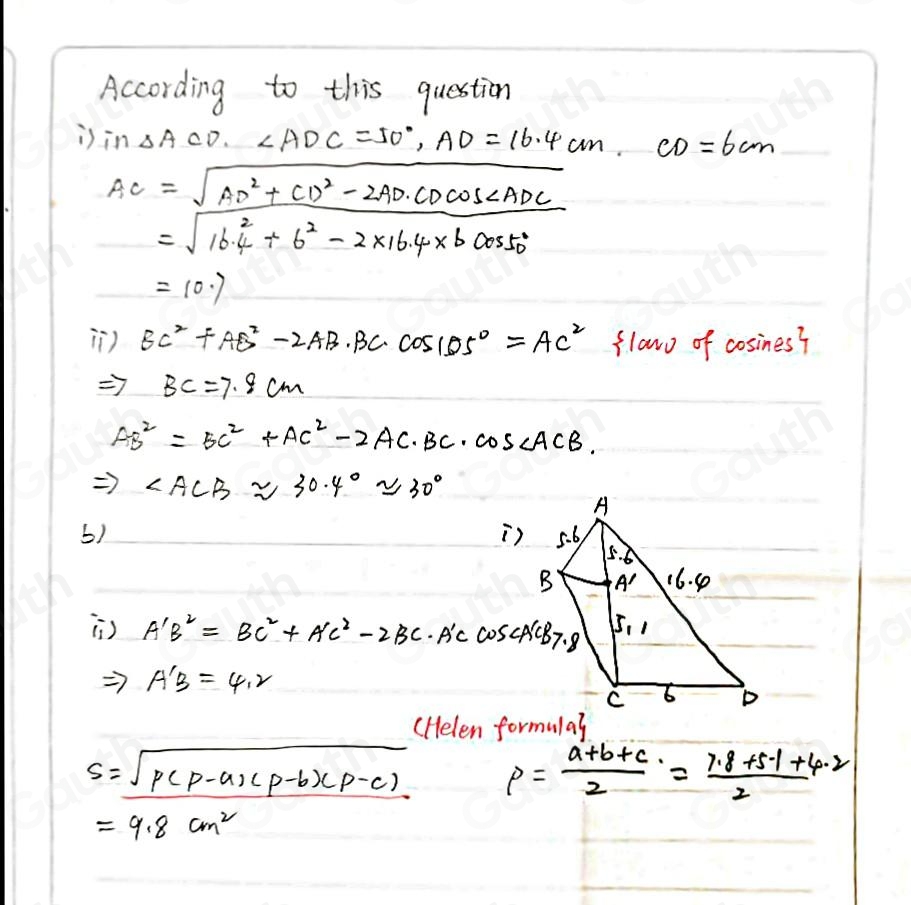 According to this question
i) in △ACD. ∠ADC = 50°, AD = 16.4 cm. CD = 6cm
AC = √(AD² + CD² - 2AD.CD cos∠ADC)
= √(16.4² + 6² - 2×16.4×6 cos50°)
= 10.7
ii) BC² + AB² - 2AB.BC. cos105° = AC² {law of cosines}
⇒ BC = 7.8 cm
AB² = BC² + AC² - 2AC.BC. cos∠ACB.
⇒ ∠ACB ≈ 30.4° ≈ 30°
b) i)
A
5.6 5.6
B A' 16.4
ii) A'B² = BC² + A'C² - 2BC. A'C cos∠A'CB 7.8 5.1
⇒ A'B = 4.2
C 6 D
(Helen formula}
S = √(p(p-a)(p-b)(p-c)) p = (a+b+c)/2. = (7.8+5.1+4.2)/2
= 9.8 cm²
Gauth